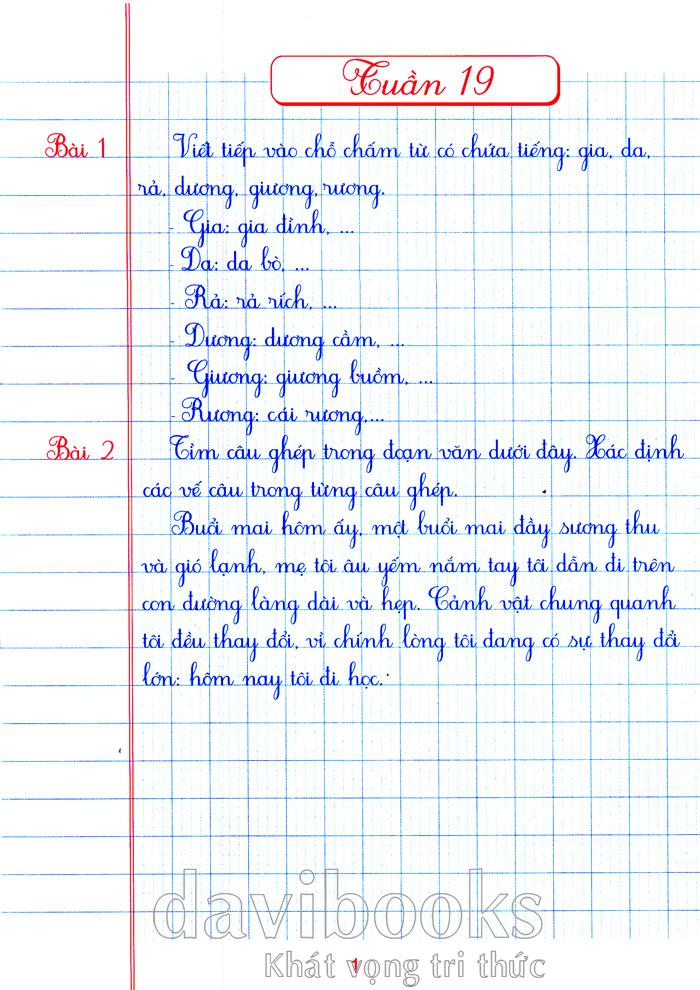 Tuần 19
Bài 1
Viết tiếp vào chỗ chấm từ có chứa tiếng: gia, da,
rả, dương, giương, rương.
- Gia: gia đình, ...
- Da: da bò, ...
- Rả: rả rích, ...
- Dương: dương cầm, ...
- Giương: giương buồm, ...
- Rương: cái rương,...
Bài 2
Tìm câu ghép trong đoạn văn dưới đây. Xác định
các vế câu trong từng câu ghép.
Buổi mai hôm ấy, một buổi mai đầy sương thu
và gió lạnh, mẹ tôi âu yếm nắm tay tôi dẫn đi trên
con đường làng dài và hẹp. Cảnh vật chung quanh
tôi đều thay đổi, vì chính lòng tôi đang có sự thay đổi
lớn: hôm nay tôi đi học.
davibooks
Khát vọng tri thức
1